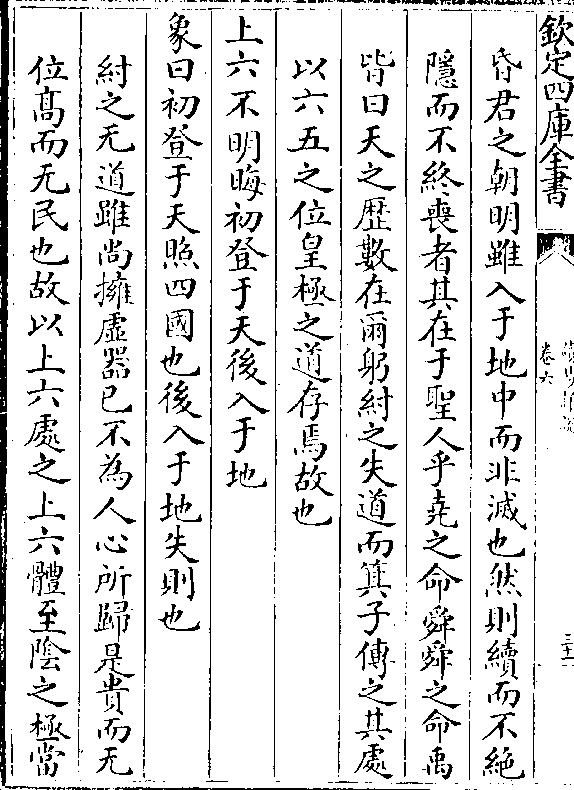 欽定四庫全書
卷六
昏君之朝明雖入于地中而非滅也然則續而不絶
隱而不終喪者其在于聖人乎堯之命舜舜之命禹
皆曰天之歴數在爾躬紂之失道而箕子傳之其處
以六五之位皇極之道存焉故也
上六不明晦初登于天後入于地
象曰初登于天照四國也後入于地失則也
紂之无道雖尚擁虛器已不為人心所歸是貴而无
位髙而无民也故以上六處之上六體至陰之極當